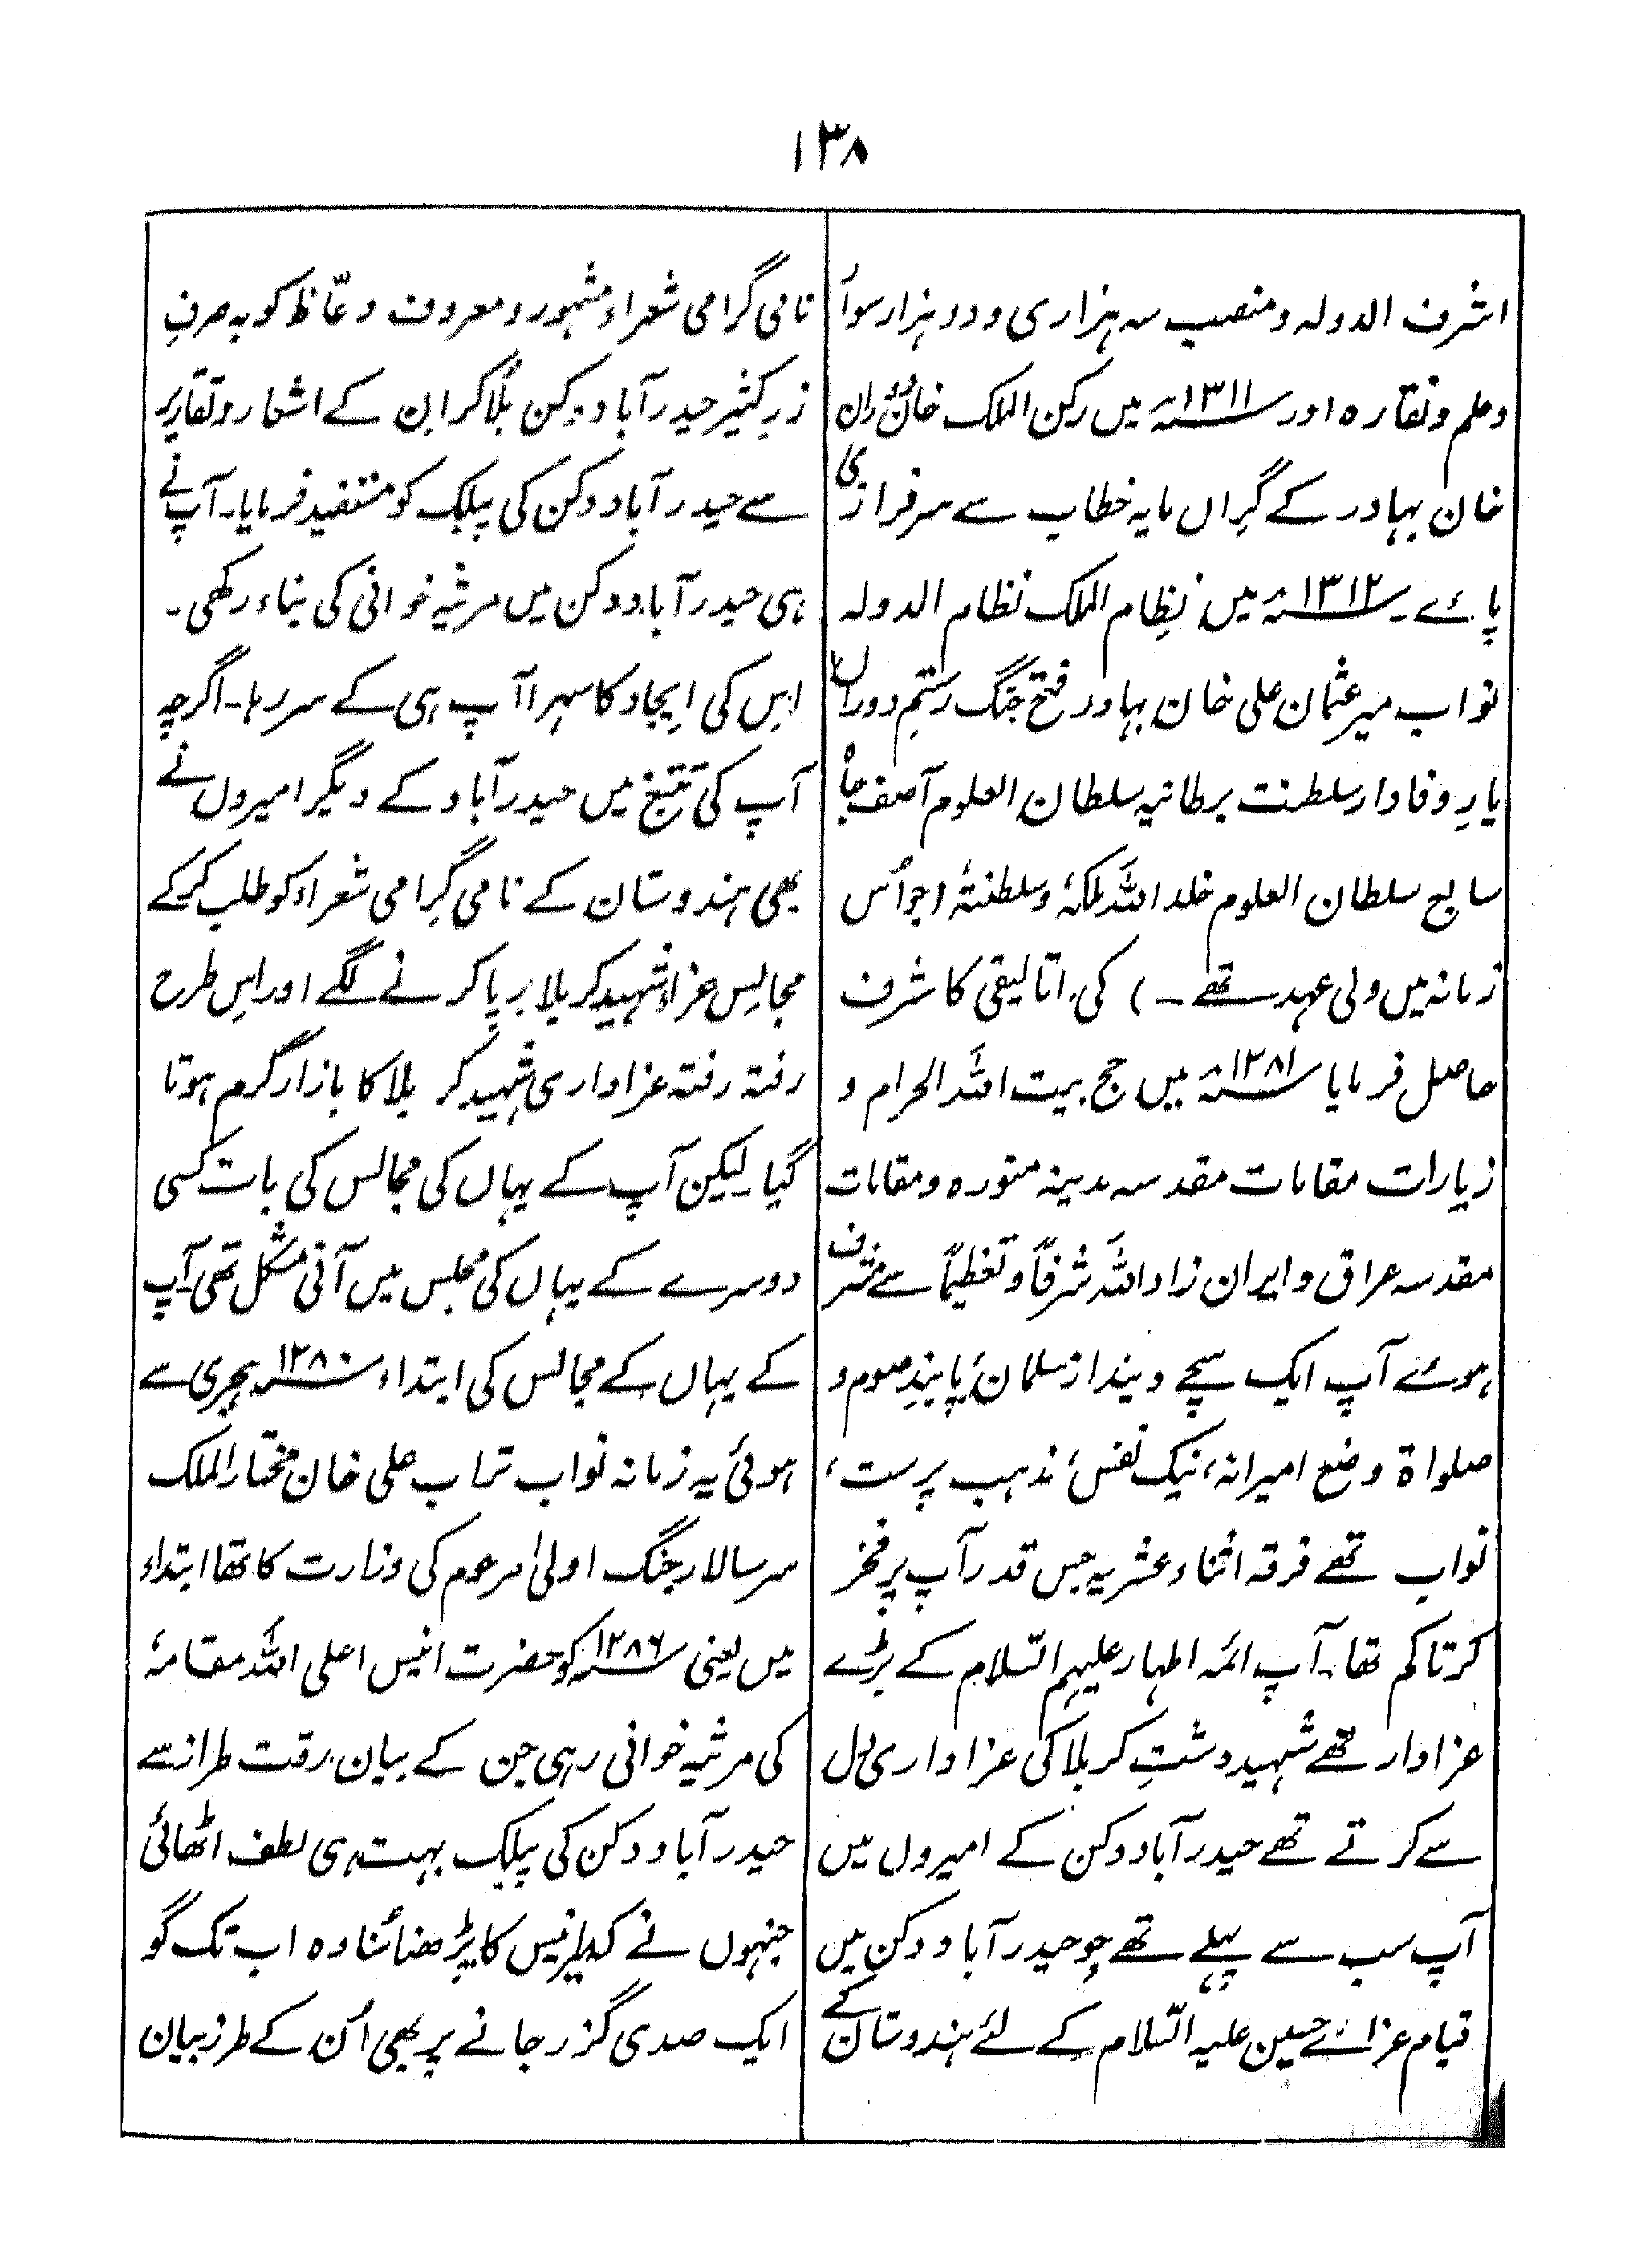 ۱۳۸
اشرف الدولہ و منصب سہ ہزاری و دو ہزار سوار
و علم و نقارہ اور ۱۳۱۱ھ میں رکن الملک خان دوران
خان بہادر کے گراں مایہ خطاب سے سرفرازی
پائے۔ ۱۳۱۲ھ میں نظام الملک نظام الدولہ
نواب میر عثمان علی خان بہادر فتح جنگ رستمِ دوراں
یارِ وفادار سلطنت برطانیہ سلطان العلوم آصف جاہ
سابع سلطان العلوم خلد اللہ ملکہٗ و سلطنتہٗ (جو اُس
زمانہ میں ولی عہد تھے۔) کی اتالیقی کا شرف
حاصل فرمایا ۱۲۸۱ھ میں حج بیت اللہ الحرام و
زیارات مقامات مقدسہ مدینہ منورہ و مقامات
مقدسہ عراق و ایران زاد اللہ شرفاً و تعظیماً سے مشرف
ہوئے آپ ایک سچے دیندار مسلمان، پابندِ صوم و
صلواۃ وضع امیرانہ، نیک نفس، مذہب پرست،
نواب تھے فرقہ اثناء عشریہ جس قدر آپ پر فخر
کرتا کم تھا۔ آپ ائمہ اطہار علیہم السّلام کے بڑے
عزادار تھے شہید دشتِ کربلا کی عزاداری دل
سے کرتے تھے حیدرآباد دکن کے امیروں میں
آپ سب سے پہلے تھے جو حیدرآباد دکن میں
قیام عزائے حسین علیہ السّلام کے لئے ہندوستان کے
نامی گرامی شعراء مشہور و معروف وعّاظ کو بہ صرفِ
زرِ کثیر حیدرآباد دکن بُلا کر ان کے اشعار و تقاریر
سے حیدرآباد دکن کی پبلک کو مستفید فرمایا۔ آپ نے
ہی حیدرآباد دکن میں مرثیہ خوانی کی بناء رکھی۔
اس کی ایجاد کا سہرا آپ ہی کے سر رہا۔ اگرچہ
آپ کی تتبع میں حیدرآباد کے دیگر امیروں نے
بھی ہندوستان کے نامی گرامی شعراء کو طلب کر کے
مجالس عزاء شہید کربلا برپا کرنے لگے اور اس طرح
رفتہ رفتہ عزاداری شہید کربلا کا بازار گرم ہوتا
گیا۔ لیکن آپ کے یہاں کی مجالس کی بات کسی
دوسرے کے یہاں کی مجلس میں آنی مشکل تھی۔ آپ
کے یہاں کے مجالس کی ابتداء ۱۲۸۰ ہجری سے
ہوئی یہ زمانہ نواب تراب علی خان مختار الملک
سر سالار جنگ اولیٰ مرحوم کی وزارت کا تھا ابتداء
میں یعنی ۱۲۸۶ کو حضرت انیس اعلی اللہ مقامہٗ
کی مرثیہ خوانی رہی جن کے بیان رقت طراز سے
حیدرآباد دکن کی پبلک بہت ہی لطف اٹھائی
جنہوں نے انیس کا پڑھنا سُنا وہ اب تک گو
ایک صدی گزر جانے پر بھی اُن کے طرز بیان